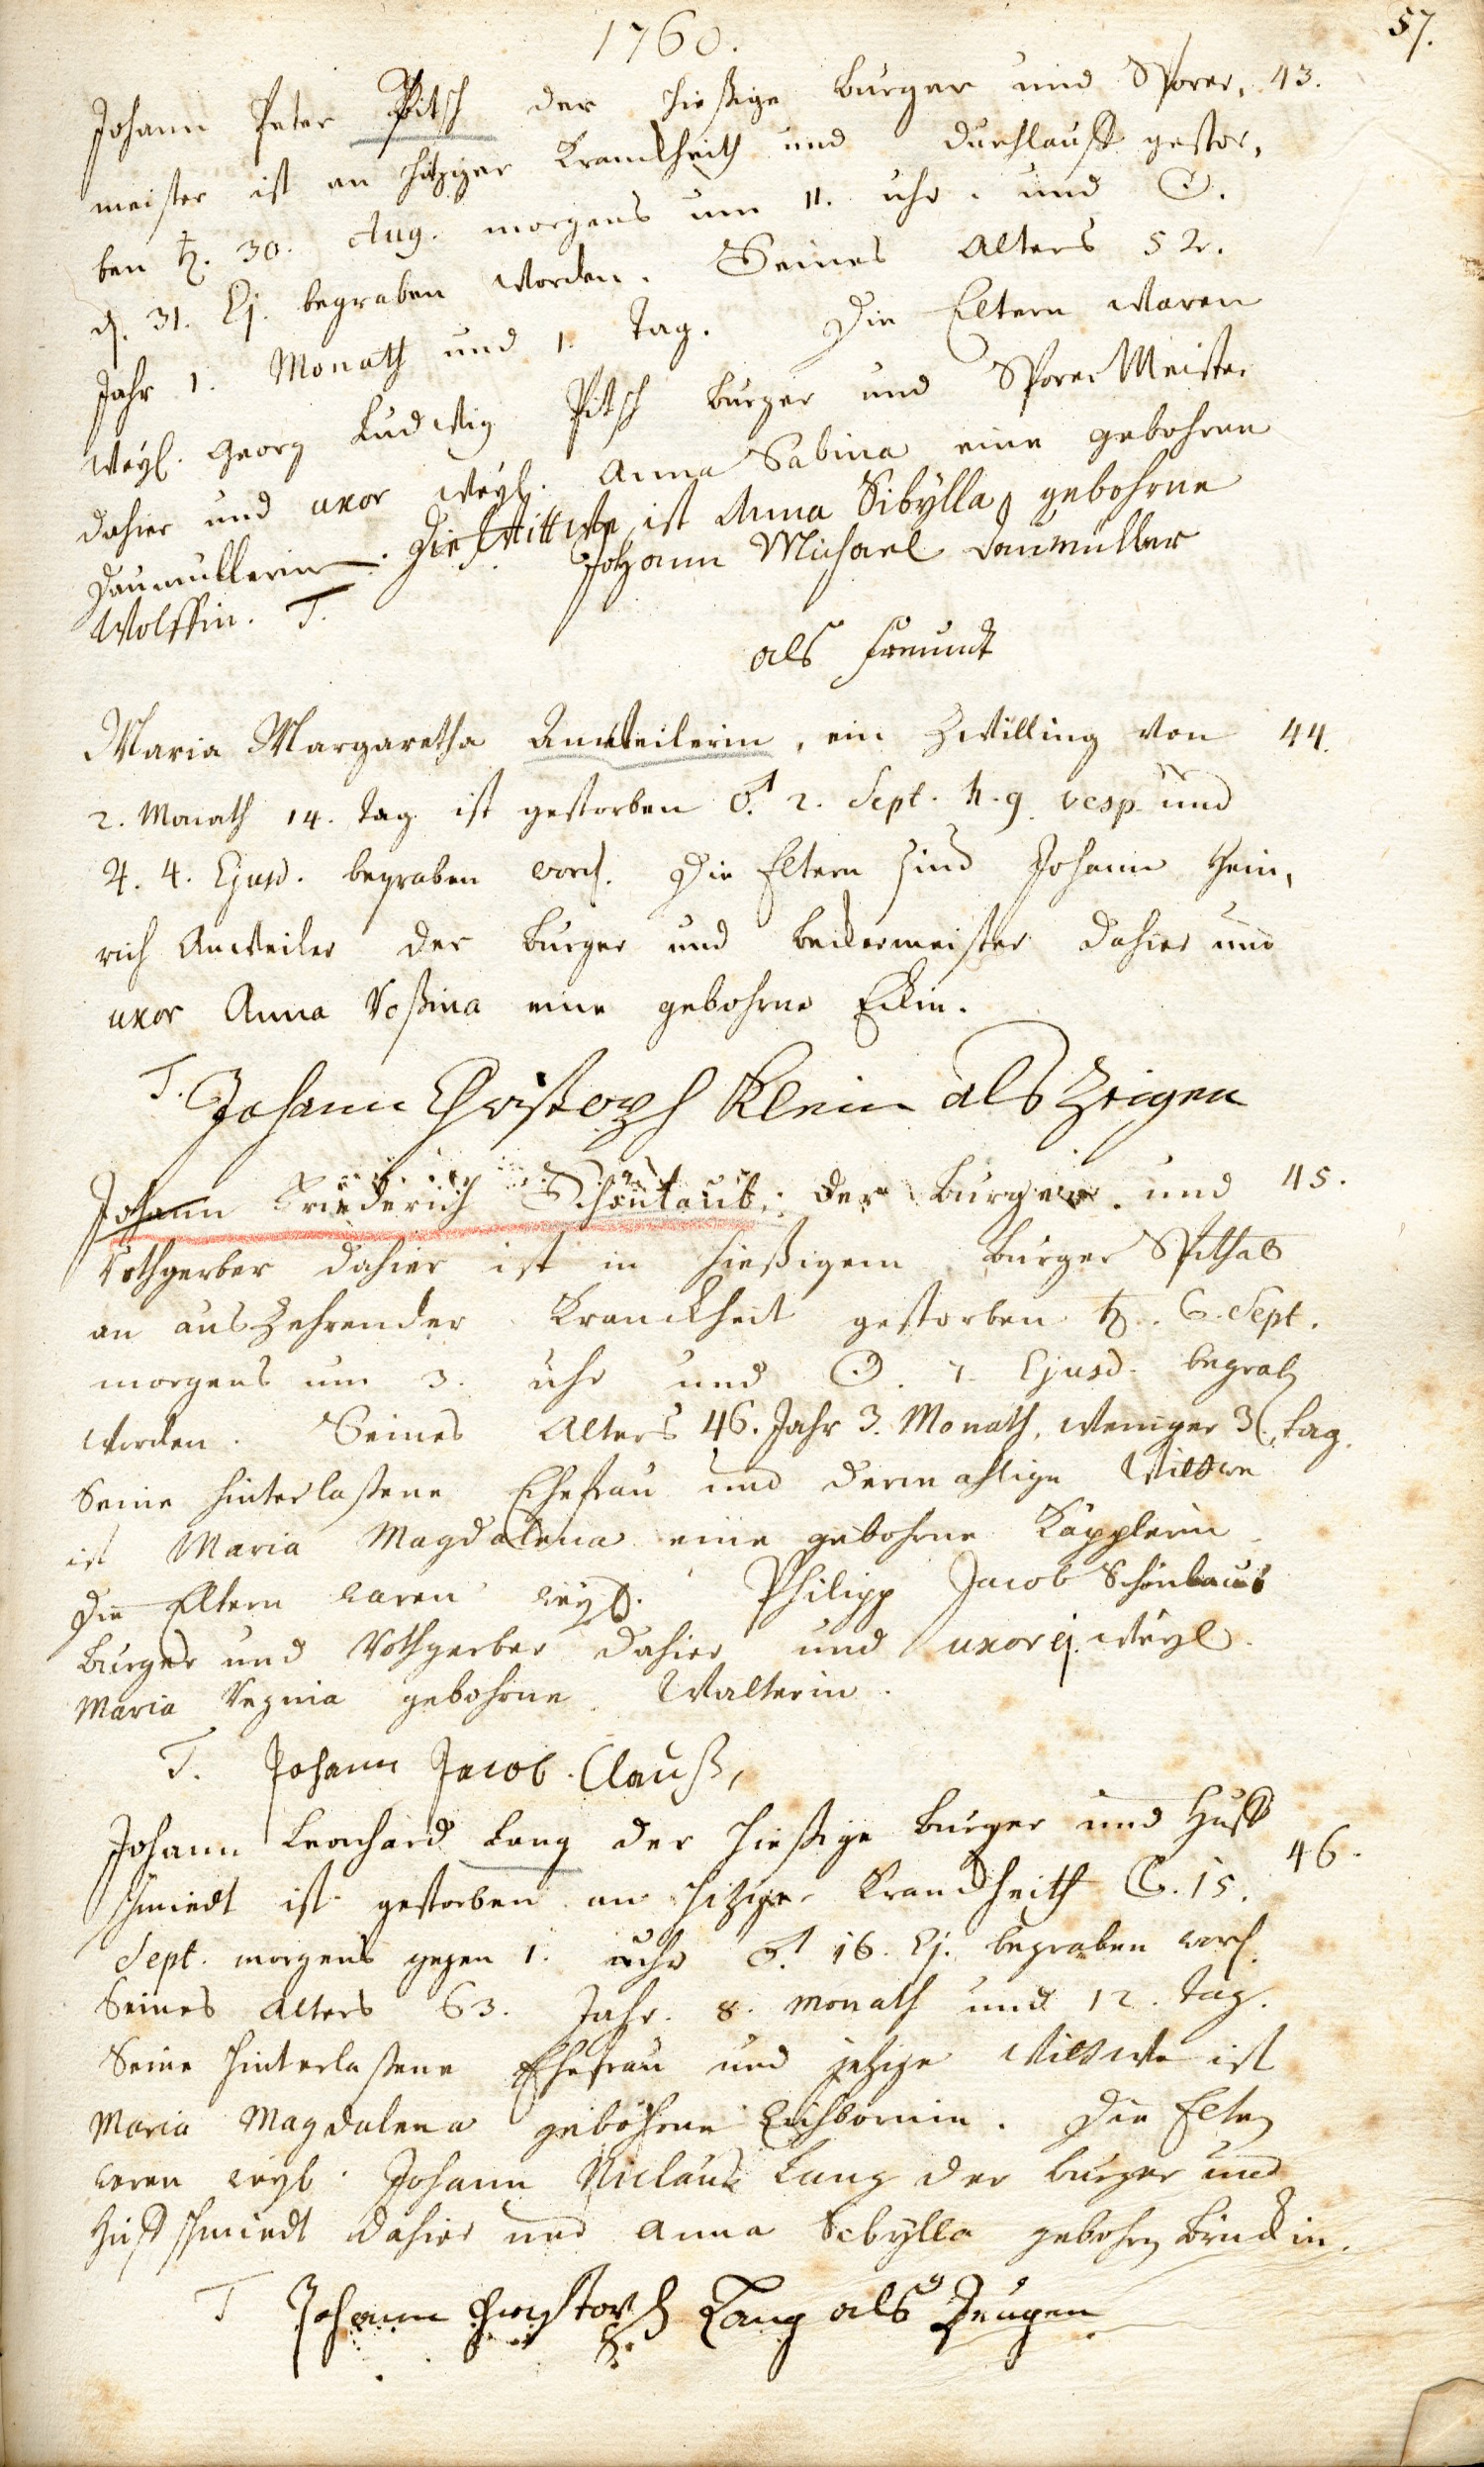 1760.
57.
Johann Peter Pitsch der hießige burger und Sporer, 43.
meister ist an hitziger Kranckheith und durchlauff gestor,
ben ♄. 30. Aug. morgens um 11. uhr. und ☉.
d. 31. Ej. begraben worden. Seines Alters 52.
Jahr 1. Monath und 1. Tag. Die Eltern waren
weyl. Georg Ludwig Pitsch burger und Sporer Meister
dahier und uxor weyl. Anna Sabina eine gebohrne
Daumüllerin. Die Wittwe ist Anna Sibylla gebohrne
Wolffin. T. Johann Michael Daumüller
als freundt
Maria Margaretha Anweilerin, ein Zwilling von 44.
2. Monath 14. tag ist gestorben ♂. 2. Sept. h. 9. vesp. und
♃. 4. Ejusd. begraben word. Die Eltern sind Johann Hein,
rich Anweiler der burger und beckermeister dahier und
uxor Anna Rosina eine gebohrne Eckin.
T. Johann Christoph Klein als Zeigen
Johann Friederich Schöntaub. der burger. und 45.
Rothgerber dahier ist in hießigem burger Spithal
an auszehrender Kranckheit gestorben ♄. 6. Sept.
morgens um 3. uhr und ☉. 7. Ejusd. begrab
worden. Seines Alters 46. Jahr 3. Monath, weniger 3. tag.
Seine hinterlaßene Ehefrau und dermahlige Wittwe
ist Maria Magdalena eine gebohrne Kapplerin
Die Eltern waren weyl. Philipp Jacob Schöntaub
burger und Rothgerber dahier und uxor ej. weyl.
Maria Regina gebohrne Walterin.
T. Johann Jacob Clauß,
Johann Leonhard Lang der hießige burger und Huff 46.
schmiedt ist gestorben an hitziger Kranckheith ☾. 15.
Sept. morgens gegen 1. uhr ♂. 16. Ej. begraben word.
Seines alters 63. Jahr. 8. monath und 12. tag.
Seine hinterlaßene Ehefrau und jetzige Wittwe ist
Maria Magdalena gebohrne Eichbornin. Die Eltern
waren weyl. Johann Niclaus Lang der burger und
Huffschmiedt dahier und Anna Sebylla gebohrn Brückin.
T Johann Christoph Lang als Zeugen